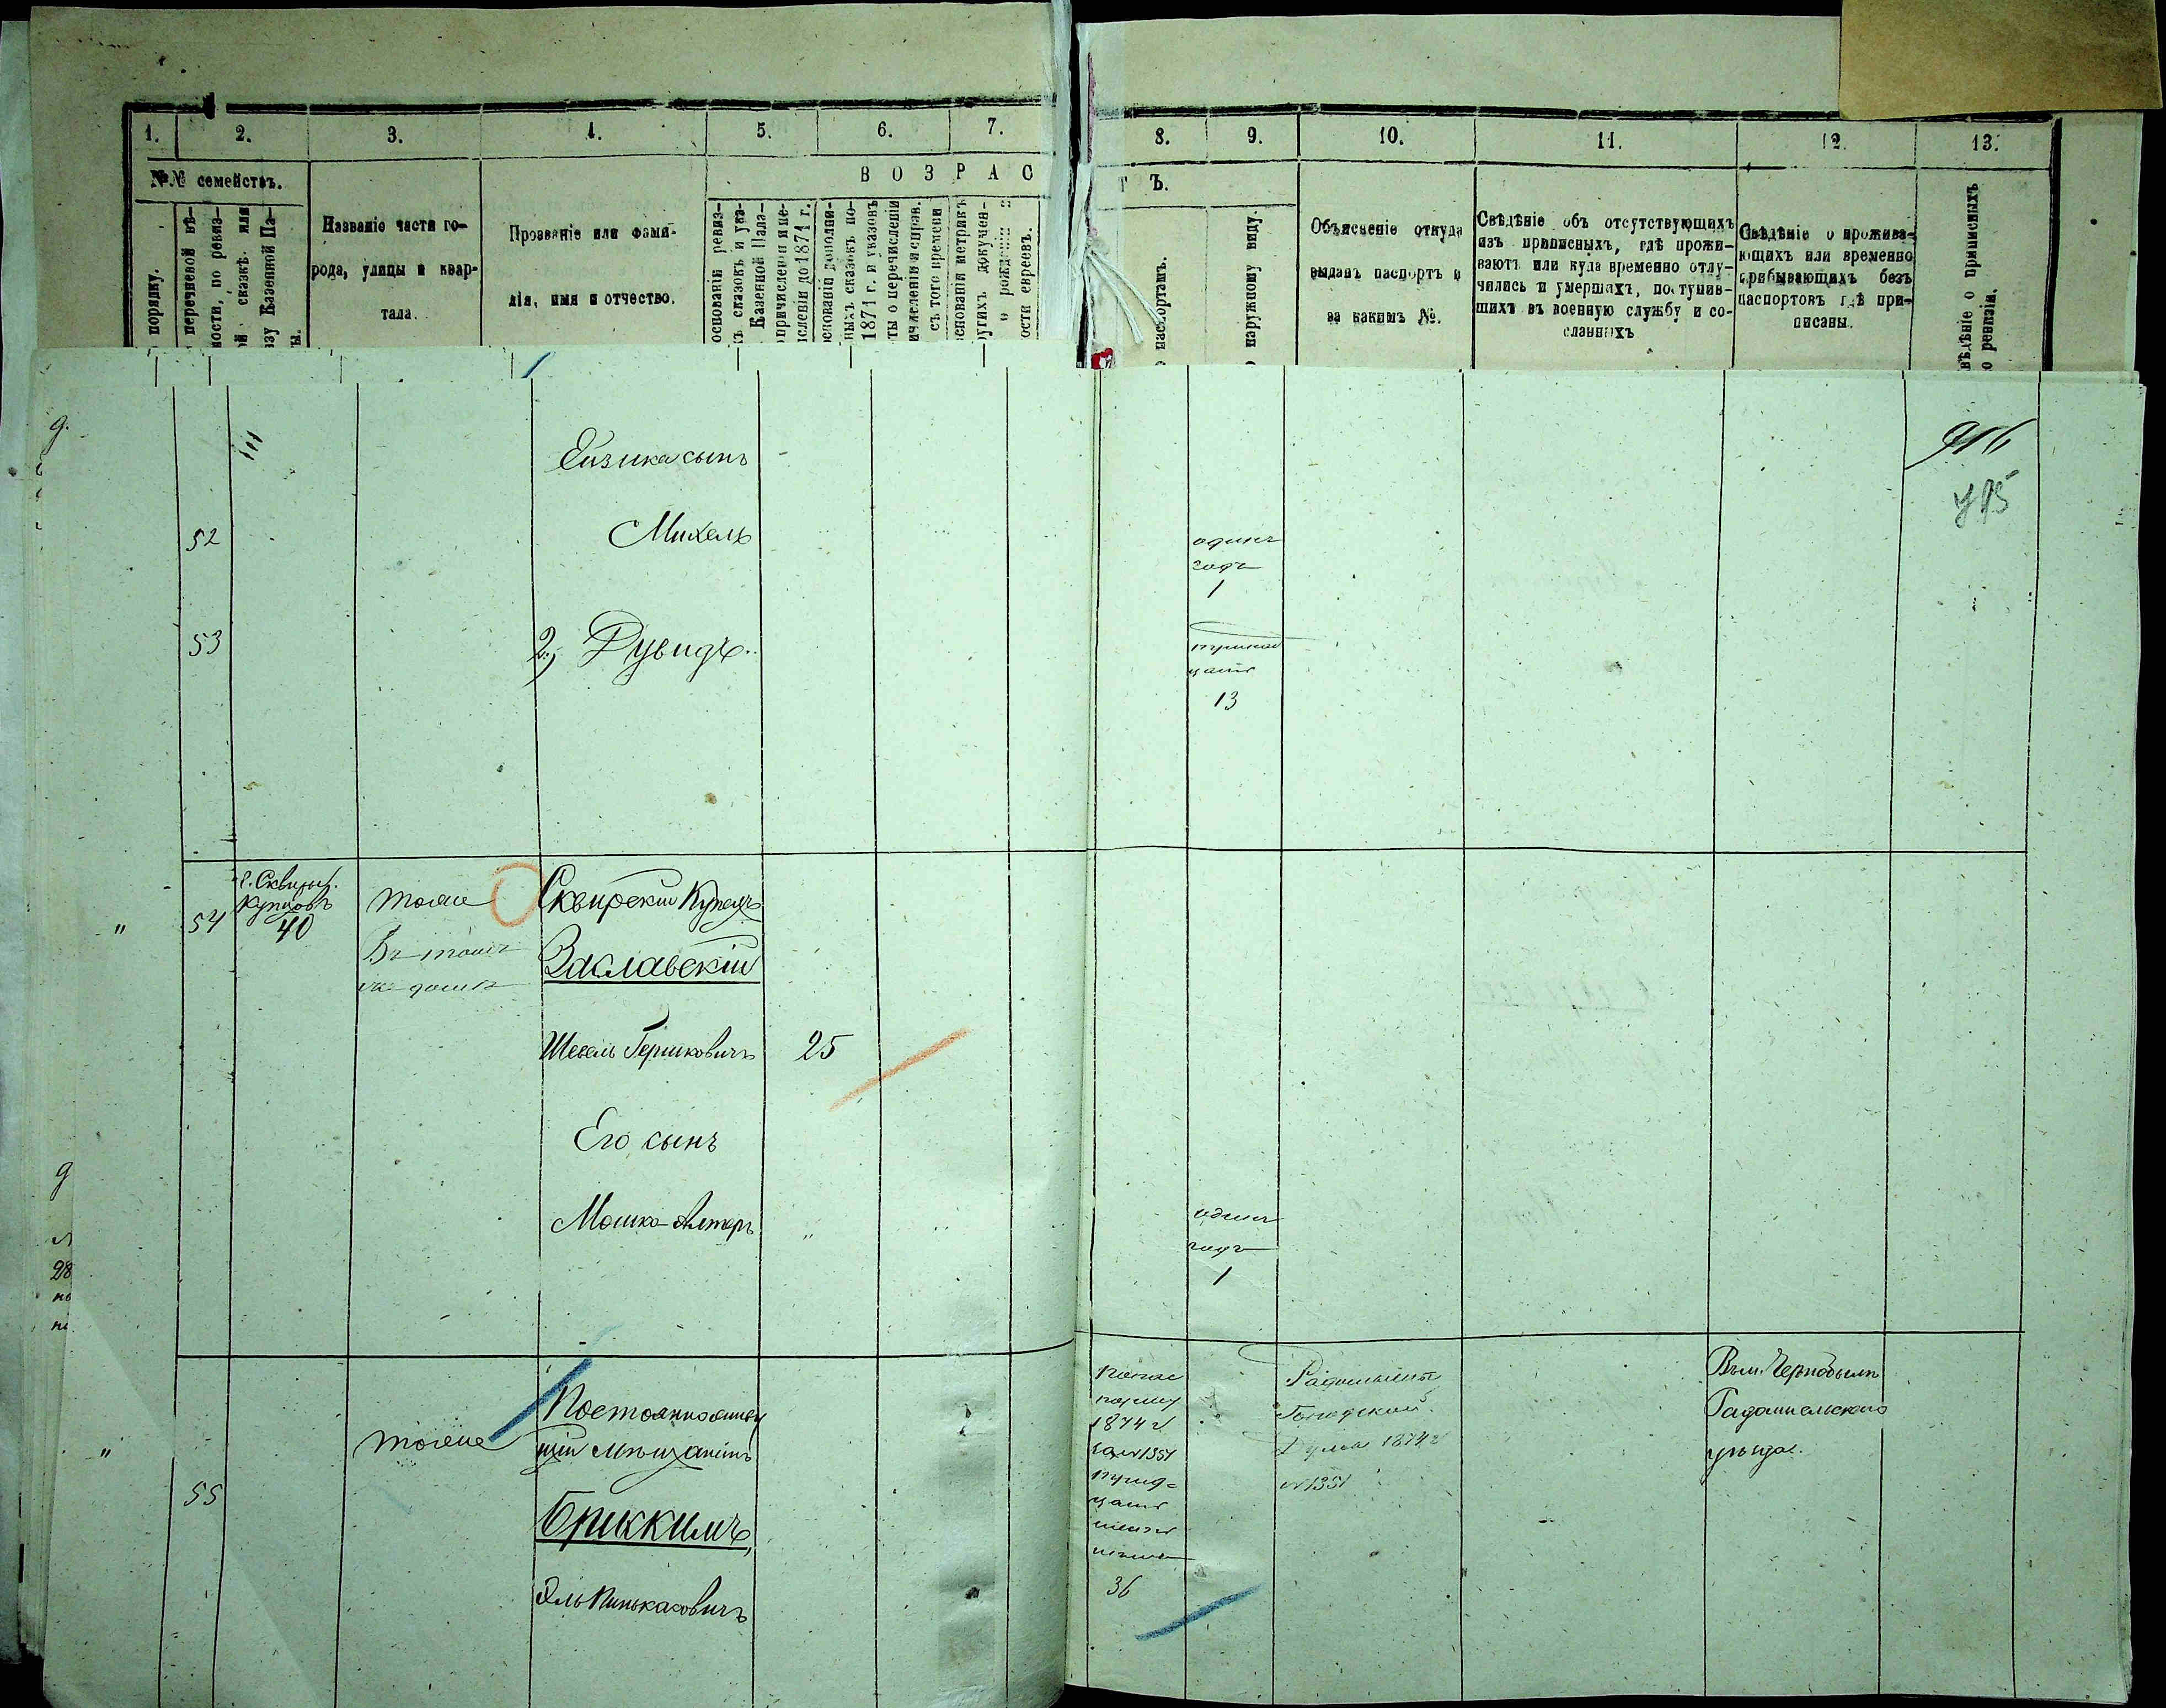 1.
2.
3.
4.
5.
6.
7.
8.
9.
10.
11.
12.
13.
№№ семействъ.
ВОЗРАС
Т Ъ.
порядку.
перечневой вѣ-
ности, по ревиз-
ой сказкѣ. или
азу Казенной Па-
ты.
Названіе части го-
рода, улицы и квар-
тала.
Прозваніе или фами-
лія, имя и отчество.
основаніи ревиз-
хъ сказокъ и ука-
Казенной Пала-
причисленіи и пе-
исленіи до 1871 г.
основаніи дополни-
ныхъ сказокъ по-
1871 г. и указовъ
ты о перечисленіи
ичисленіи и справ.
съ того времени
основаніи метрикъ
ругихъ докумен-
о рожденіи и
ости евреевъ.
о паспортамъ.
о наружному виду.
Объясненіе откуда
выданъ паспортъ и
за какимъ №.
Свѣдѣніе объ отсутствующихъ
изъ приписныхъ, гдѣ прожи-
ваютъ или куда временно отлу-
чились и умершихъ, поступив-
шихъ въ военную службу и со-
сланныхъ
Свѣдѣніе о прожива-
ющихъ или временно
прибывающихъ безъ
паспортовъ гдѣ при-
писаны.
вѣдѣніе о приписныхъ
о ревизіи.
916
495
Ейзика сынъ
52
Михель
одинъ
годъ
1
53
2, Рувидъ
тринад
цать
13
"
54
г. Сквиры.
купцовъ
40
тоже
Въ томъ
же домѣ
Сквирскій Купецъ
Заславскій
Шевель Гершковичъ
25
Его сынъ
Мошко-Алтеръ
"
одинъ
годъ
1
"
55
тоже
Постоянноживу
щій мѣщанинъ
Бриккимъ,
Эль Пинькасовичъ
по пас
порту
1874 г
за №1351
трид=
цать
шесть
36
Радомысльск
Городской
Думы 1874 г
№1351
Въ м. Чернобыль
Радомысльскаго
уѣзда.